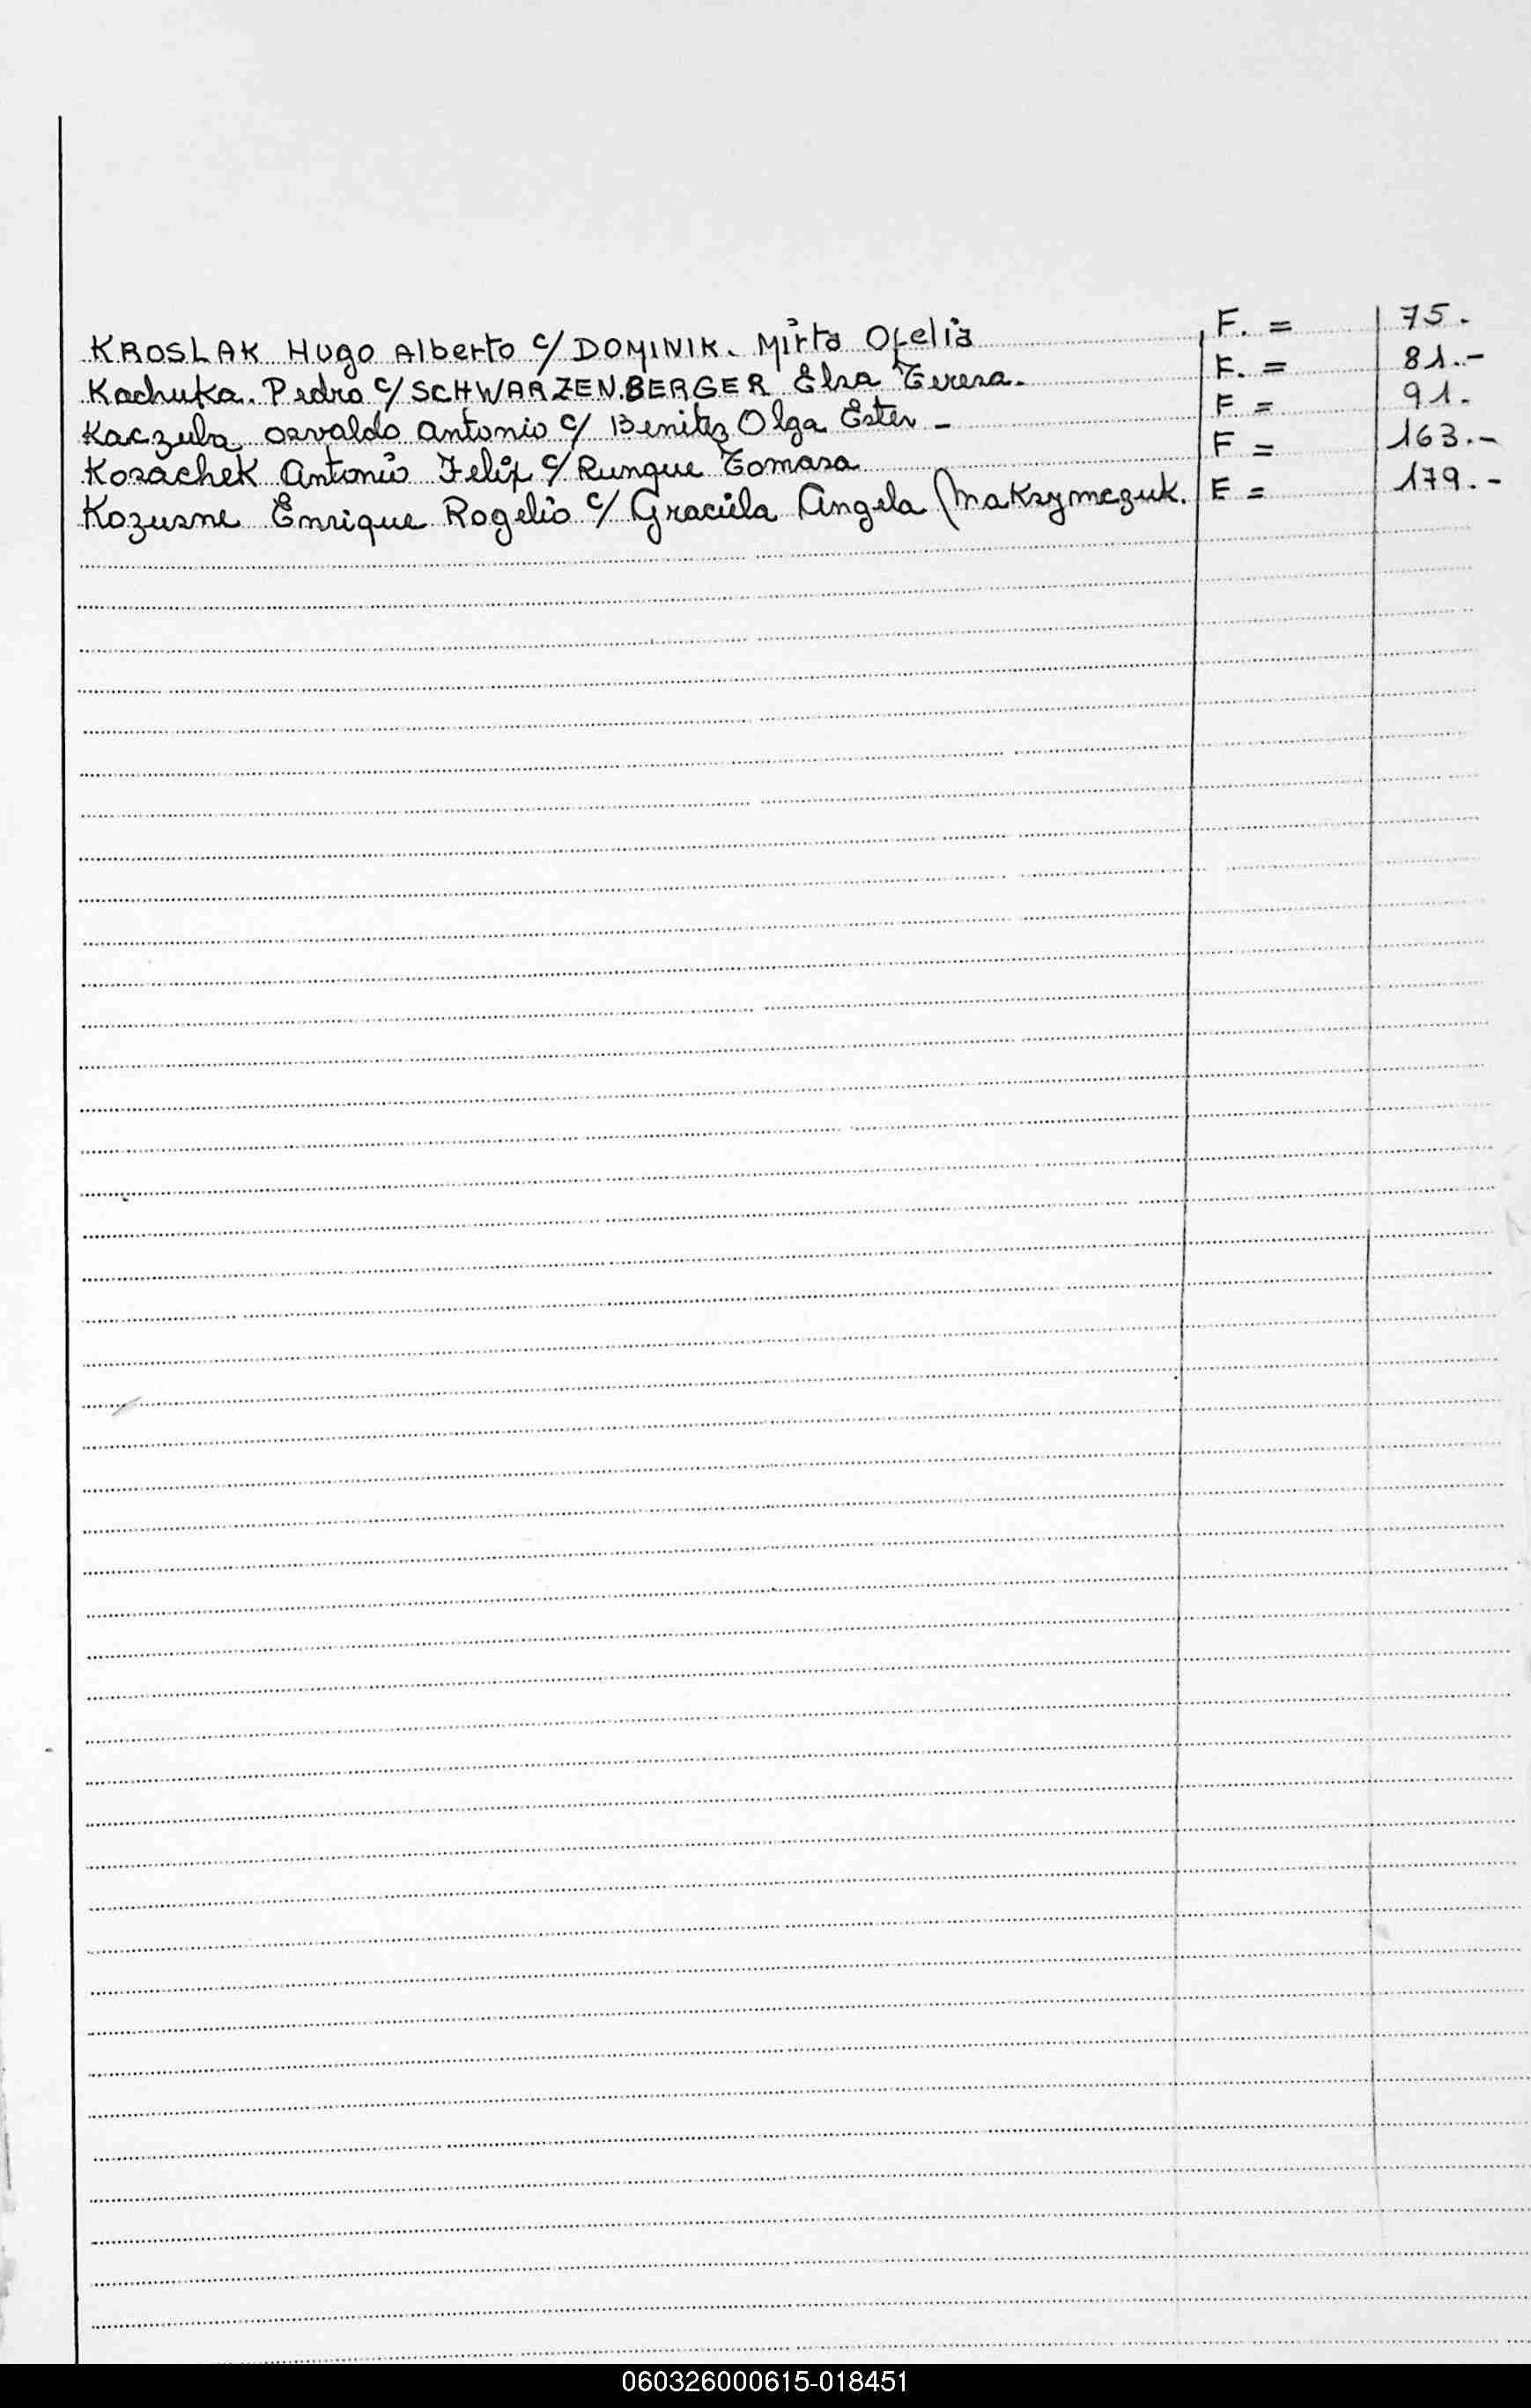 KROSLAK Hugo Alberto c/ DOMINIK. Mirta Ofelia F. = 75.
Kachuka. Pedro c/ SCHWARZENBERGER Elsa Teresa. F. = 81.-
Kaczuba Osvaldo Antonio c/ Benitez Olga Ester - F = 91.
Kosachek Antonio Felix c/ Rungue Tomasa F = 163.-
Kozusne Enrique Rogelio c/ Graciela Angela Maksymczuk. F = 179.-
060326000615-018451